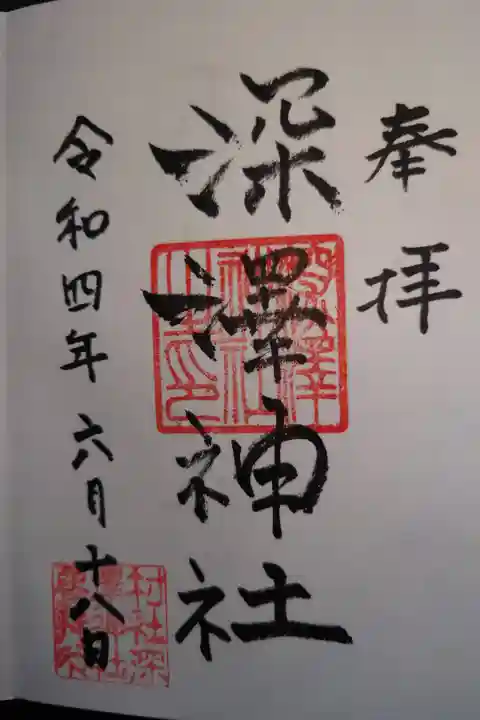 奉拝
深澤神社
令和四年六月十八日
深澤神社之印